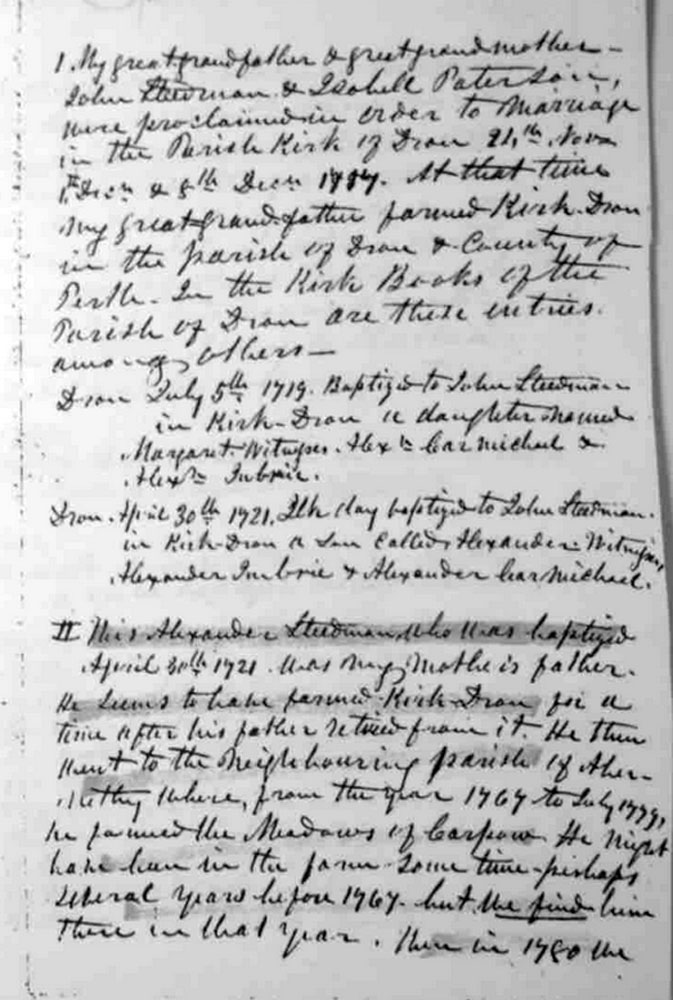 I. My great grandfather & great grandmother –
John Steedman & Isobell Paterson,
were proclaimed in order to Marriage
in the Parish Kirk of Dron 21,th Novr
1st Decr & 8th Decr 1717. At that time
my great-grand-father farmed Kirk-Dron
in the parish of Dron & County of
Perth. In the Kirk Books of the
Parish of Dron are these entries.
among others –
Dron July 5th 1719. Baptized to John Steedman
in Kirk-Dron a daughter named
Margaret. Witnesses. Alexr Carmichael &
Alexr Imbrie.
Dron. April 30th 1721. Ilk day baptized to John Steedman.
in Kirk-Dron a Son called Alexander – Witnesses,
Alexander Imbrie & Alexander Carmichael.
II This Alexander Steedman, who was baptized
April 30th 1721 was my Mother's father.
He seems to have farmed Kirk-Dron for a
time after his father retired from it. He then
went to the Neighbouring parish of Aber-
nethy where, from the year 1767 to July 1779,
he farmed the Meadows of Carpow. He might
have been in the farm some time – perhaps
several years before 1767. but we find him
there in that year. Then in 1780 the